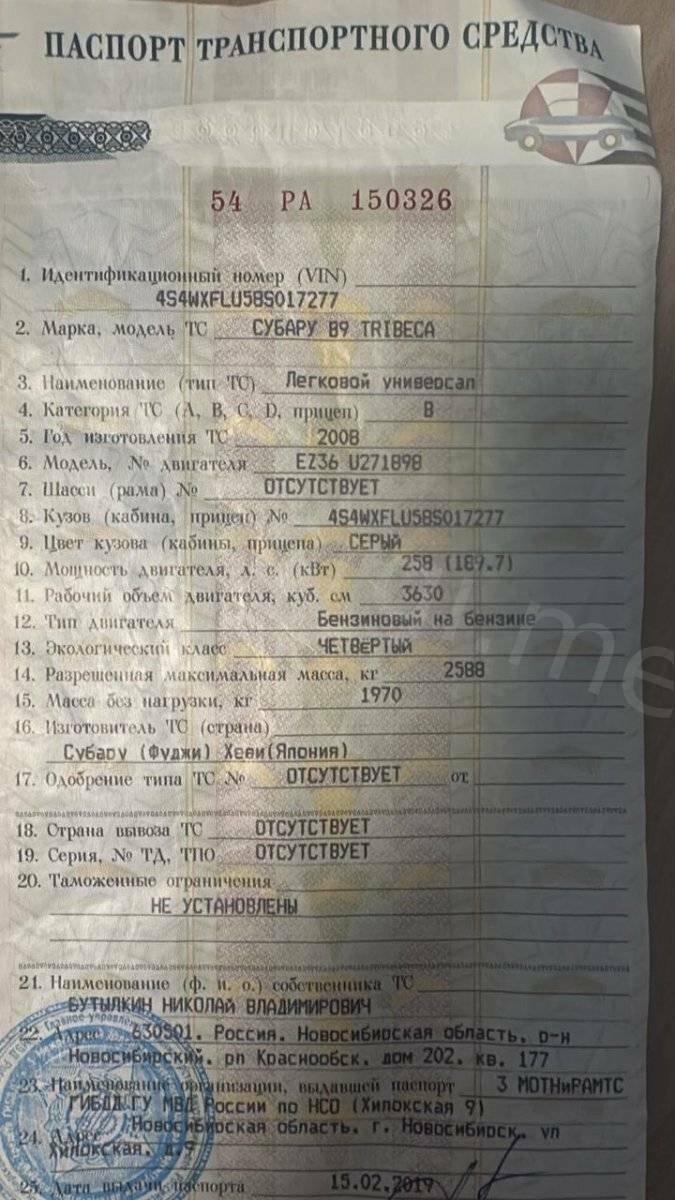 ПАСПОРТ ТРАНСПОРТНОГО СРЕДСТВА
54 РА 150326
1. Идентификационный номер (VIN)
4S4WXFLU58S017277
2. Марка, модель ТС СУБАРУ B9 TRIBECA
3. Наименование (тип ТС) Легковой универсал
4. Категория ТС (А, В, С, D, прицеп) В
5. Год изготовления ТС 2008
6. Модель, № двигателя EZ36 U271898
7. Шасси (рама) № ОТСУТСТВУЕТ
8. Кузов (кабина, прицеп) № 4S4WXFLU58S017277
9. Цвет кузова (кабины, прицепа) СЕРЫЙ
10. Мощность двигателя, л. с. (кВт) 258 (189.7)
11. Рабочий объем двигателя, куб. см 3630
12. Тип двигателя Бензиновый на бензине
13. Экологический класс ЧЕТВЁРТЫЙ
14. Разрешенная максимальная масса, кг 2588
15. Масса без нагрузки, кг 1970
16. Изготовитель ТС (страна)
Субару (Фуджи) Хеви(Япония)
17. Одобрение типа ТС № ОТСУТСТВУЕТ от
18. Страна вывоза ТС ОТСУТСТВУЕТ
19. Серия, № ТД, ТПО ОТСУТСТВУЕТ
20. Таможенные ограничения
НЕ УСТАНОВЛЕНЫ
21. Наименование (ф. и. о.) собственника ТС
БУТЫЛКИН НИКОЛАЙ ВЛАДИМИРОВИЧ
22. Адрес 630501. Россия. Новосибирская область. р-н
Новосибирский. рп Краснообск. дом 202. кв. 177
23. Наименование организации, выдавшей паспорт 3 МОТНиРАМТС
ГИБДД ГУ МВД России по НСО (Хилокская 9)
24. Адрес Новосибирская область. г. Новосибирск. ул
Хилокская. д.9
25. Дата выдачи паспорта 15.02.2019